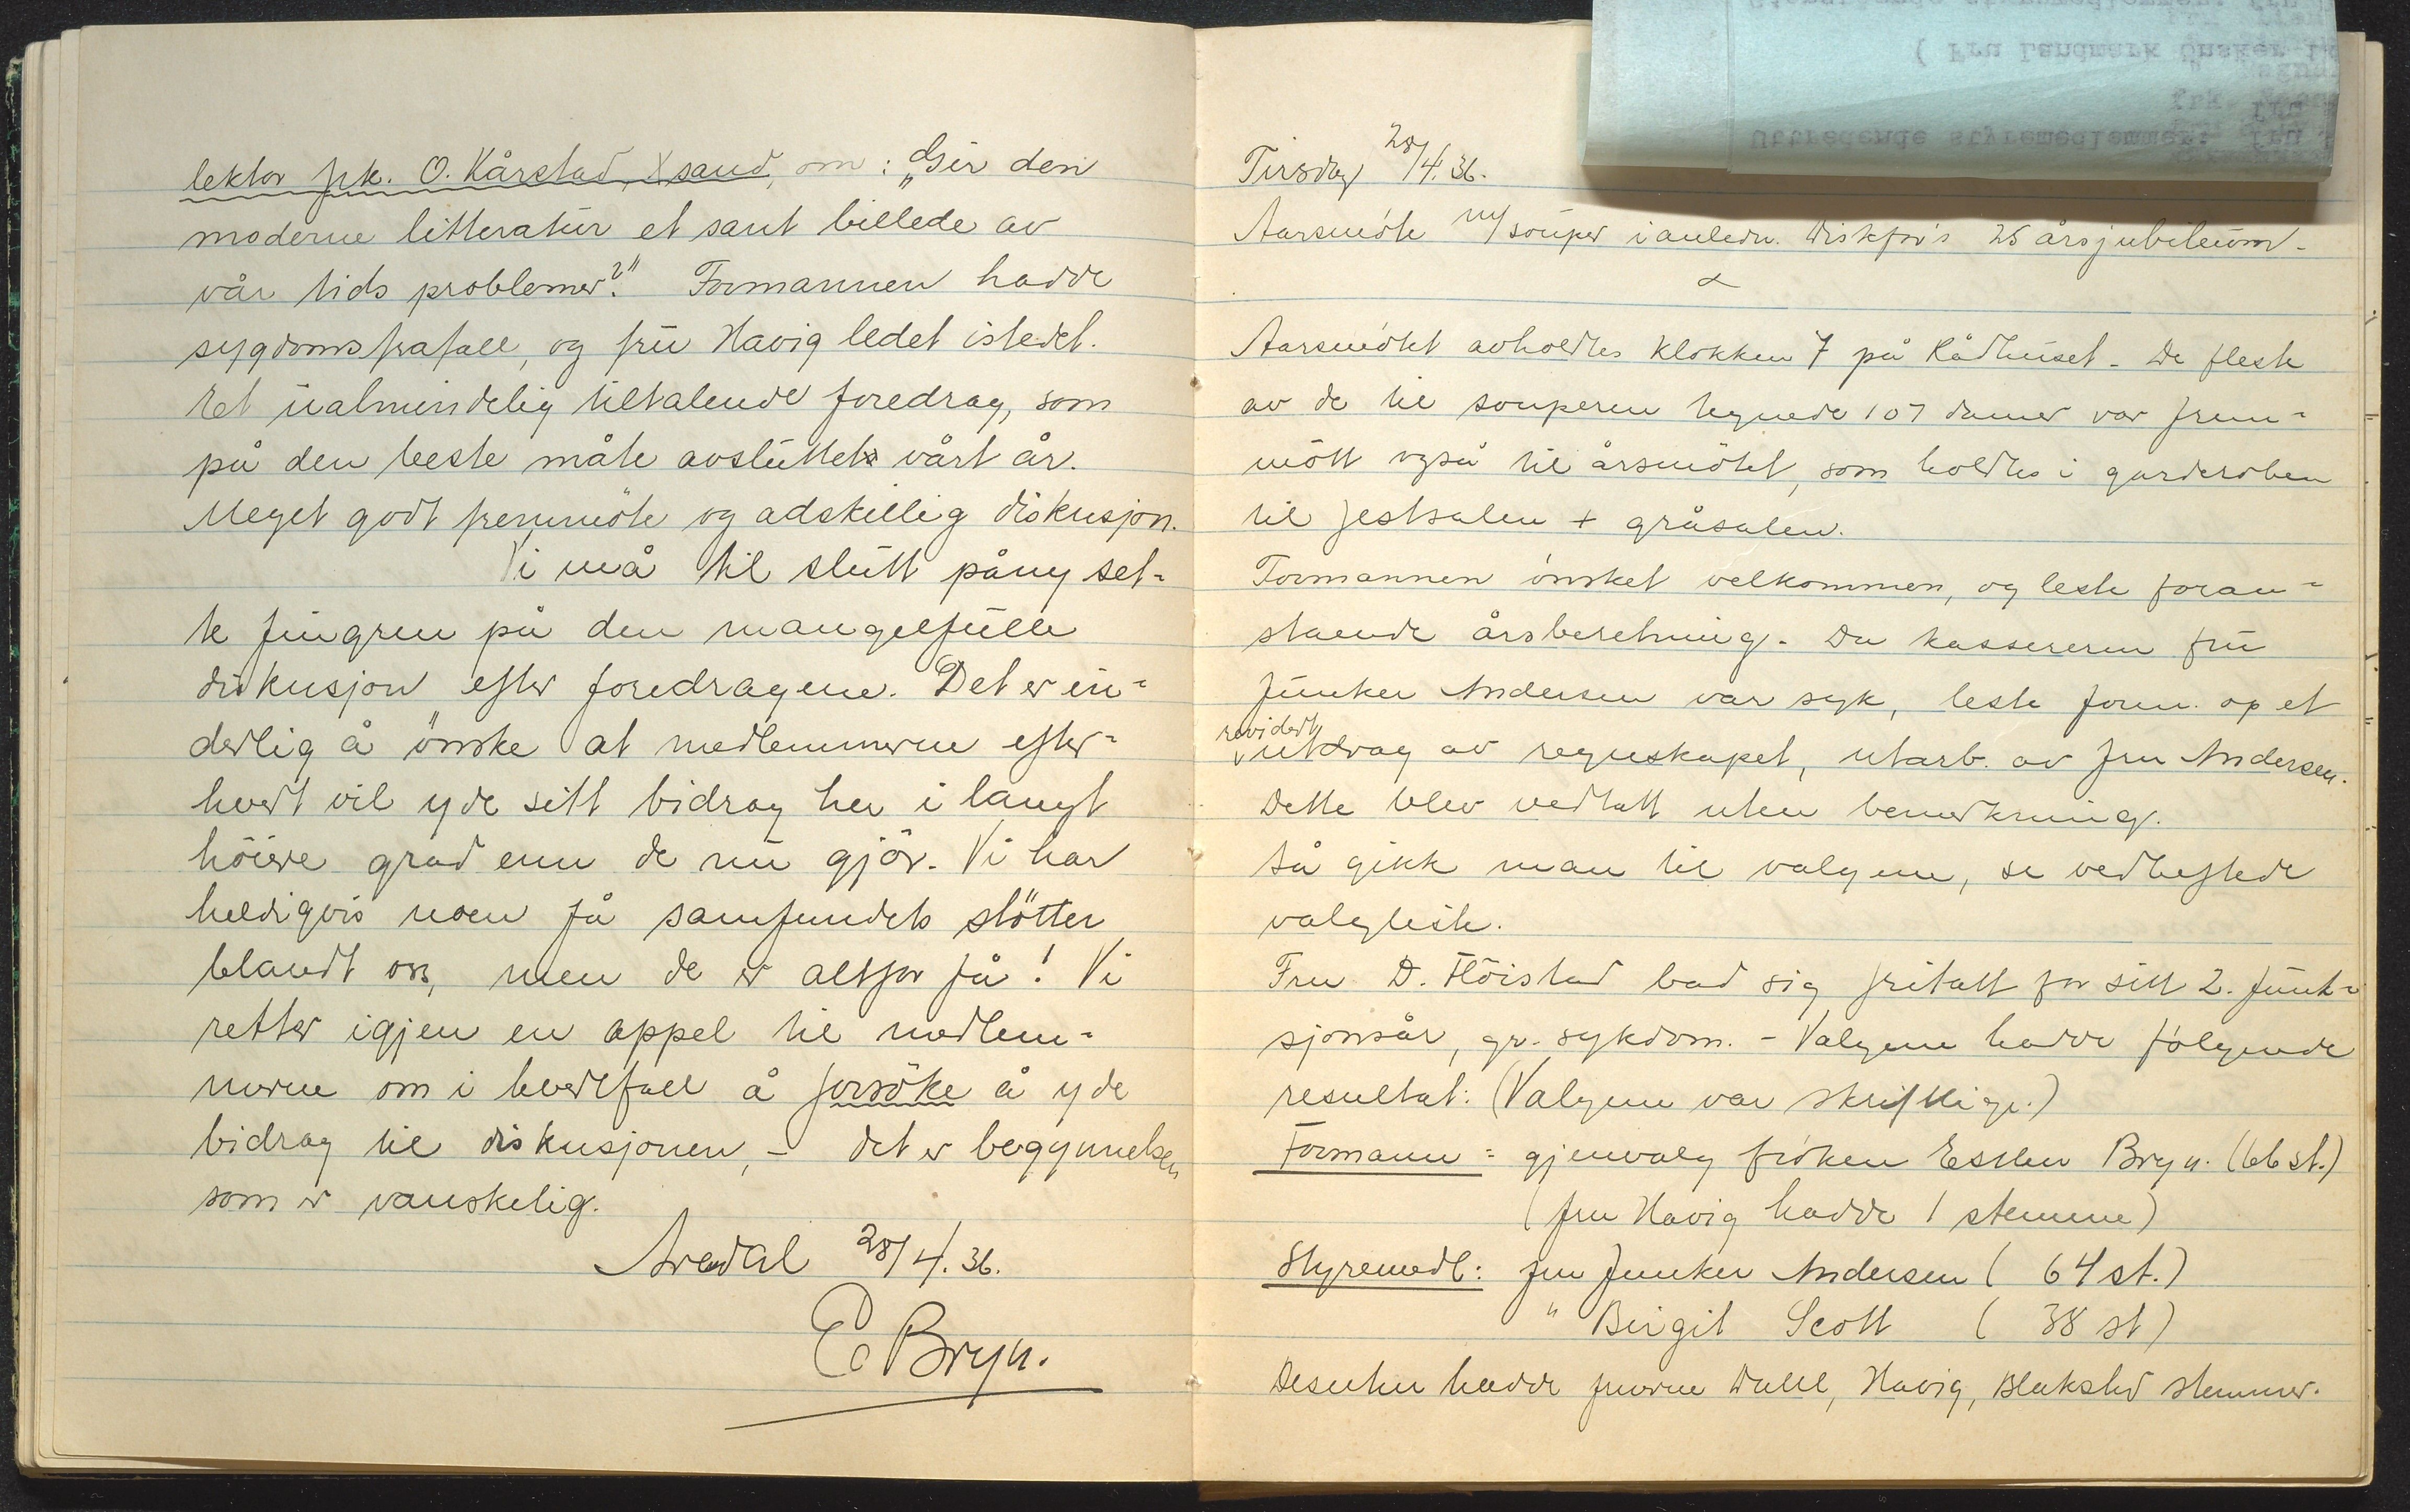 lektor frk. O. Kårstad, Xsand, om: „Gir den
moderne litteratur et sant billede av
vår tids problemer?" Formannen hadde
sygdomsfrafall, og fru Havig ledet istedet.
Et ualmindelig tiltalende foredrag, som
på den beste måte avsluttet vårt år.
Meget godt fremmöte og adskillig diskusjon.
Vi må til slutt påny set-
te fingren på den mangelfulle
diskusjon efter foredragene. Det er in-
derlig å önske at medlemmerne efter-
hvert vil yde sitt bidrag her i langt
höiere grad enn de nu gjör. Vi har
heldigvis noen få samfundets stötter
blandt oss, men de er altfor få! Vi
retter igjen en appel til medlem-
merne om i hvertfall å forsöke å yde
bidrag til diskusjonen, - det er begynnelsen
som er vanskelig.
Arendal 28/4. 36.
E Bryn.
( Fru Landmark ønsker
Uttredende styremedlemmer: fru
Tirsdag 28/4. 36.
Aarsmöte m/ souper i anledn. Diskfor's 25 årsjubileum.
Aarsmötet avholdtes klokken 7 på Rådhuset. De fleste
av de til souperen tegnede 107 damer var frem-
mött også til årsmötet, som holdtes i garderoben
til festsalen + gråsalen.
Formannen önsket velkommen, og leste foran-
staende årsberetning. Da kassereren fru
Junker Andersen var syk, leste form. op et
revidert
utdrag av regnskapet, utarb. av fru Andersen.
Dette blev vedtatt uten bemerkning.
Så gikk man til valgene, se vedheftede
valgliste.
Fru D. Flöistad bad sig fritatt for sitt 2. funk-
sjonsår, gr. sykdom. - Valgene hadde fölgende
resultat: (Valgene var skriftlige.)
Formann: gjenvalg fröken Esther Bryn. (66 st.)
(fru Havig hadde 1 stemme)
Styremedl: fru Junker Andersen ( 64 st.)
" Birgit Scott ( 38 st)
Desuten hadde fruerne Dahl, Havig, Blakstad stemmer.